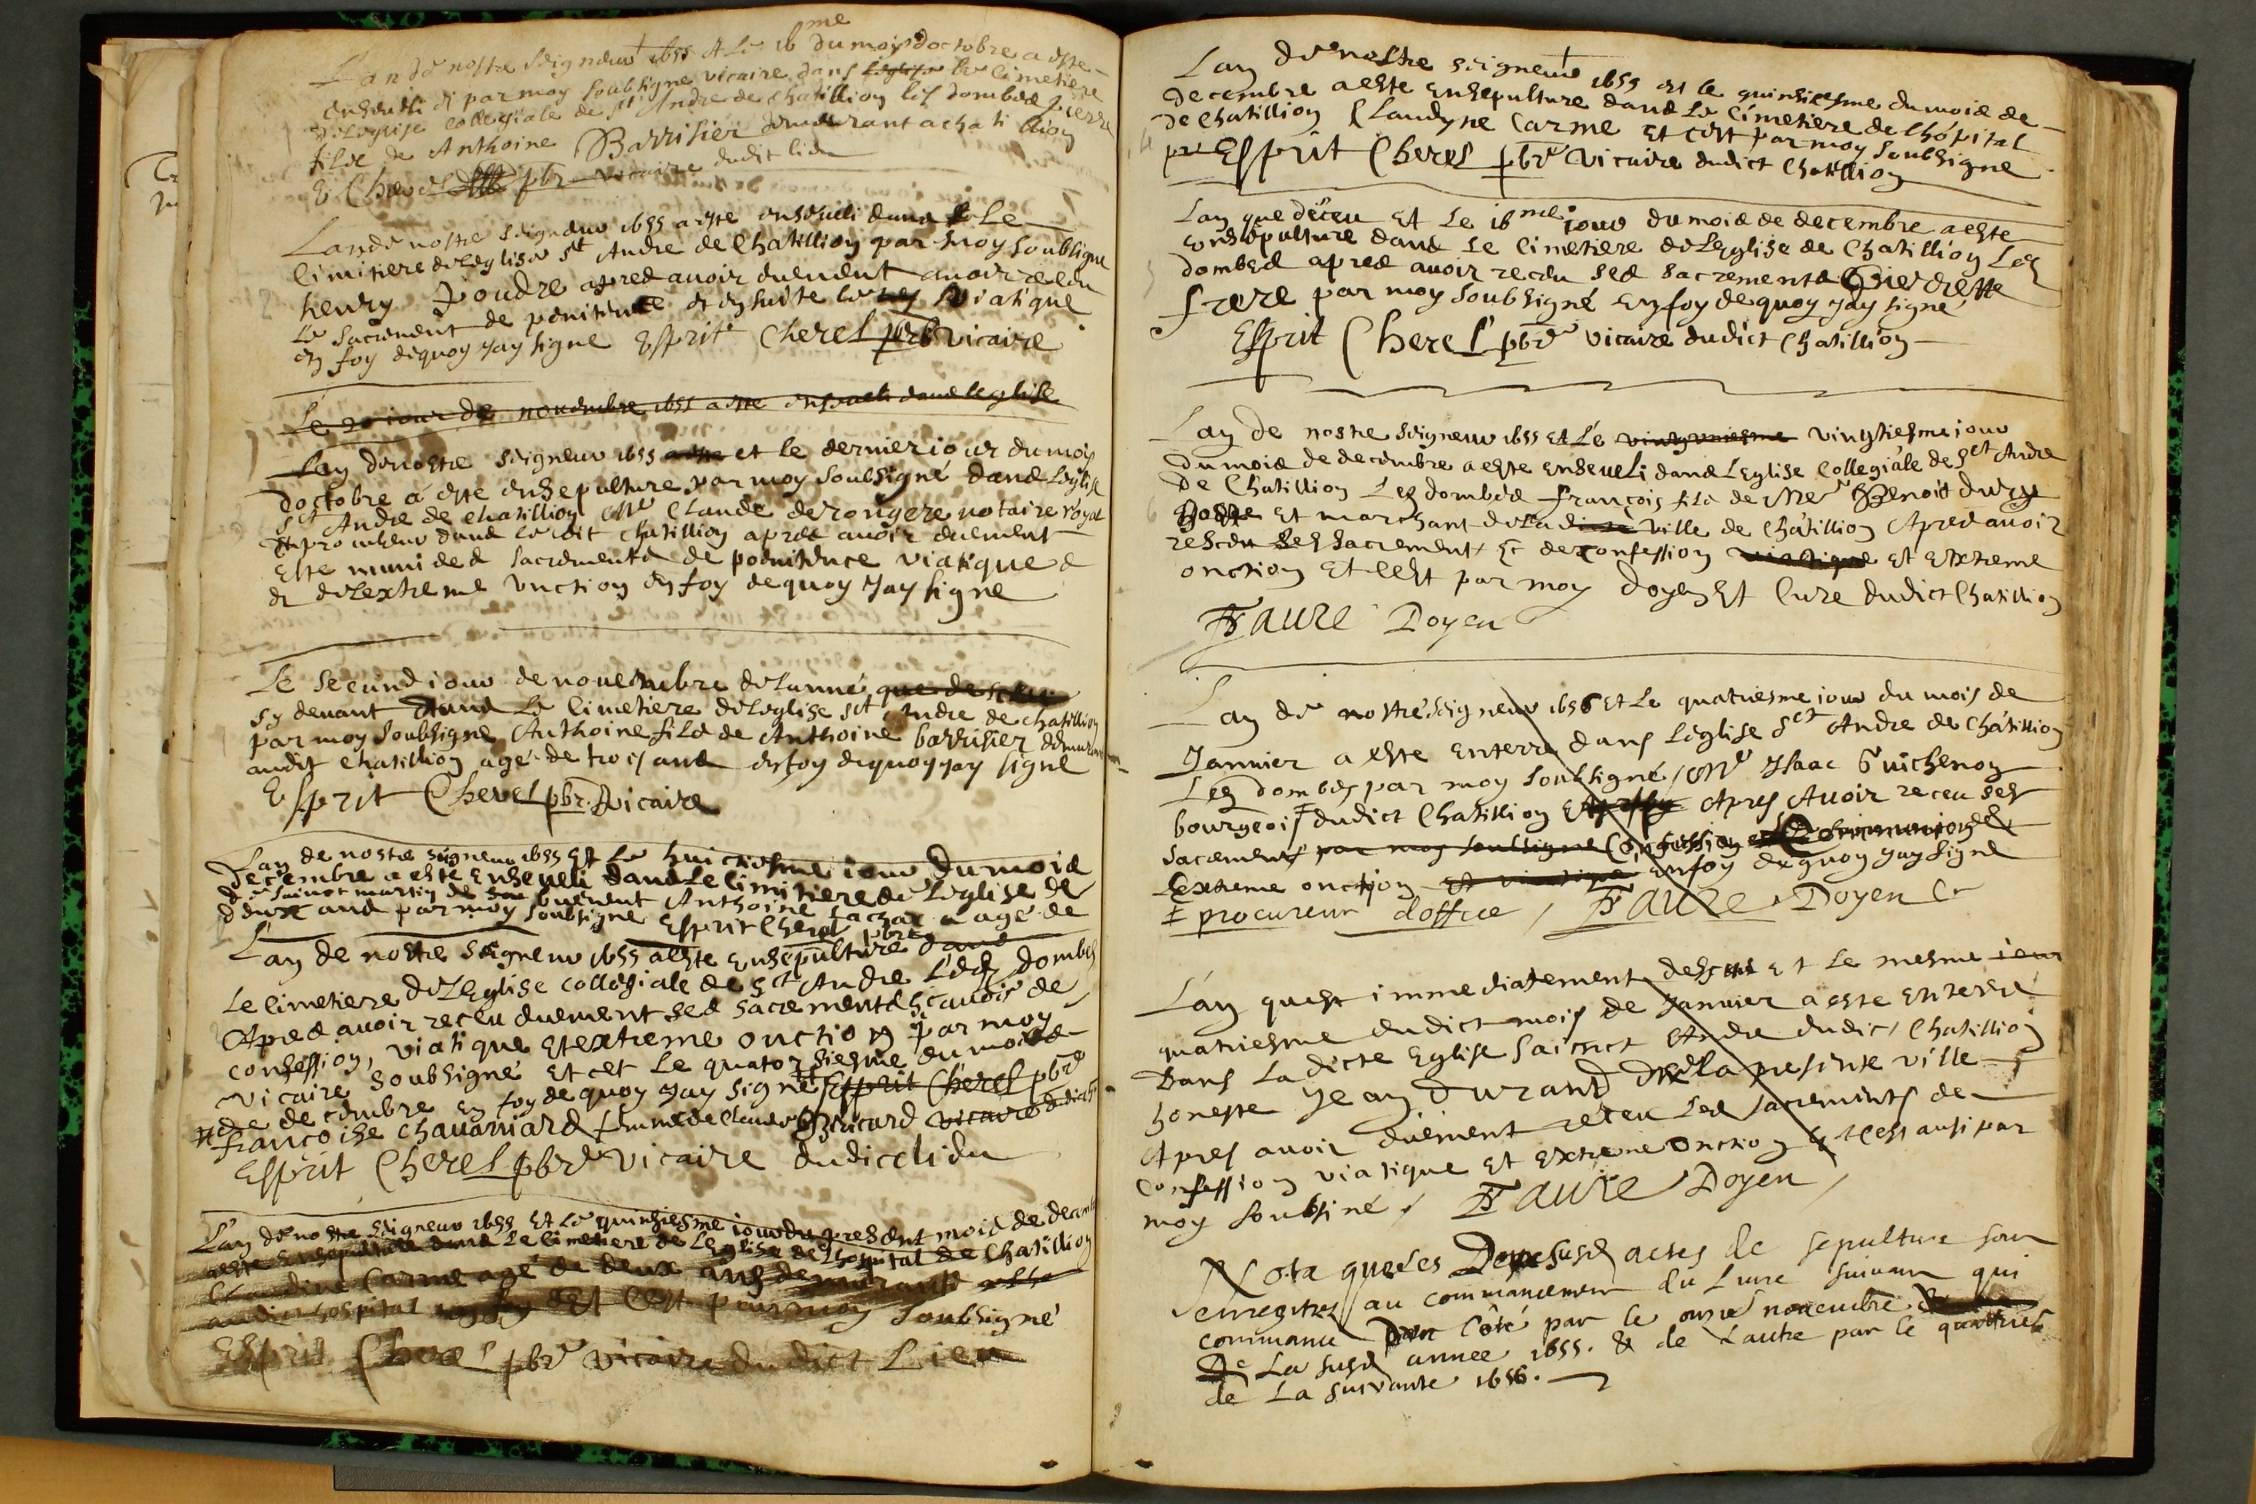 Lan de nostre Seigneur 1655 et le 16me du moys doctobre a este
enseueli et par moy soubsigne vicaire dans leglise le cimetiere
de leglise collegiale de St Andre de chatillion les dombes pierre
fils de Anthoine Barrisier demeurant a chatillion
E Cherel pbr vicaire dudit lieu
Lan de nostre Seigneur 1655 a este enseueli dans le
cimitiere de leglise St Andre de Chatillion par moy soubsigne
henry Poudre apres auoir duement auoir receu
le sacrement de penitence et en suite le viatique
en foy dequoy jay signe Esprit Cherel pbr vicaire
Le 20 iour de nouembre 1655 a este enseueli dans leglise
Lan de nostre Seigneur 1655 a este et le dernier iour du moys
doctobre a este ensepulture par moy soubsigné dans leglise
St Andre de chatillion Mre Claude derongere notaire royal
et procureur dans le dit chatillion apres auoir duement
este muni des sacrements de poenitence viatique
et de lextreme unction en foy dequoy jay signe
Le second iour de nouembre de lanné que dessus
sy deuant dans le cimetiere de leglise sct Andre de chatillion
par moy soubsigne Anthoine fils de Anthoine barrisier demurant
audit chatillion agé de trois ans en foy dequoy jay signe
Esprit Cherel pbr. vicaire
Lan de nostre seigneur 1655 Et le huictiesme iour du mois
decembre a este enseueli dans le cimitiere de leglise de
de sainct martin de buenent Anthoine agé de
deux ans par moy soubsigne Esprit Cherel pbre
Lan de nostre Seigneur 1655 a este ensepulture dans
le cimetiere de LEglise collegiale de sct Andre Les dombes
Apres auoir receu duement ses sacrements scauoir de
confession, viatique et extreme onction par moy
vicaire soubsigné Et cet le quatorsiesme du mois
de decembre en foy de quoy jay signe Esprit Cherel pbre
francoise chauarniard femme de Claude Bricard vicaire dudict
Esprit Cherel pbre vicaire dudict lieu
Lan de nostre Seigneur 1655 Et le quinsiesme iour du present mois de decembre
a este ensepulture dans le cimetiere de Leglise de Lhospital de Chatillion
Claudine Carme agé de deux ans demurant
audict hospital en foy Et Cest par moy soubsigné
Esprit Cherel pbre vicaire dudict Lieu
Lan de nostre seigneur 1655 et le quinsiesme du mois de
decembre a este ensepulture dans le cimetiere de lhópital
de Chatillion Claudyne Carme et cest par moy soubsigne
Esprit Cherel pbre vicaire dudict Chatillion
Lan que deceu et le 16me iour du mois de decembre a este
ensepulture dans le cimetiere de Leglise de Chatillion Les
dombes apres auoir receu ses sacrements Pierrette
frere par moy soubsigné en foy de quoy jay signé
Esprit Cherel pbre vicaire dudict Chatillion
Lan de nostre seigneur 1655 et Le vingtuniesme vingtiesme iour
du mois de decembre a este enseueli dans LEglise Collegiale de sct Andre
de Chatillion Les dombes françois fils de Mre Benoit
et marchant de la ditte ville de Châtillion Apres auoir
resceu ses sacrement de confession viatique et extreme
onction Et cest par moy doyen et Cure dudict Chatillion
Faure Doyen
Lan de nostre seigneur 1656 et Le quatriesme iour du mois de
Januier a este enterre dans leglise sct Andre de Châtillion
Les dombes par moy soubsigné Mre Ysaac Guichenon
bourgeois dudict Chatillion Apres Auoir receu ses
sacements par moy soubsigne Confession et Communion et
Lextreme onction et viatique en foy dequoy jay signe
procureur doffice / Faure Doyen
Lan quest immediatement descus et le mesme iour
quatriesme dudict mois de Januier a este enterré
dans ladicte eglise sainct Andre dudict Chatillion
honeste Jean Durand de la presente ville
Apres auoir duement receu les sacrements de
confession viatique et extreme onction et cest ausi par
moy soubsiné / Faure Doyen
Nota que les Deux susd actes de sepulture sont
enregitres au commancement du Liure suivant qui
commance d'un côté par le onzie nouembre
De La susd annee 1655. & de Lautre par le quatrieme
de La suivante 1656.